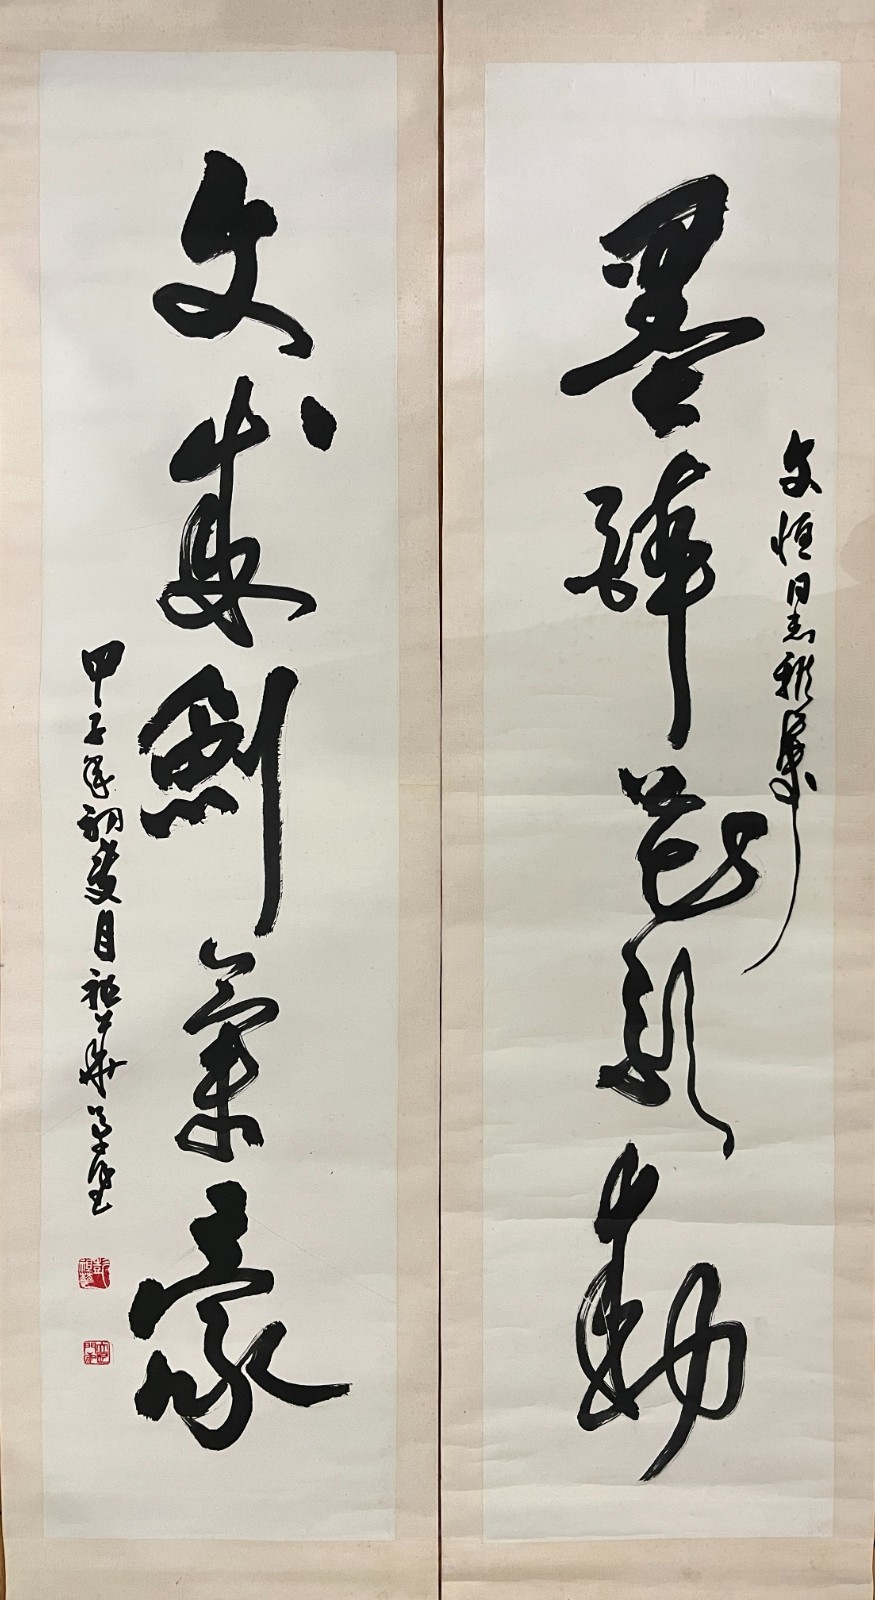 墨花影動
文恒同志雅屬
文成劍氣豪
甲子年初夏月祖華